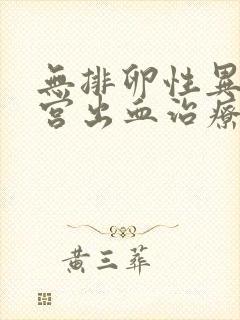 無排卵性異
宮出血治療
黃三葬